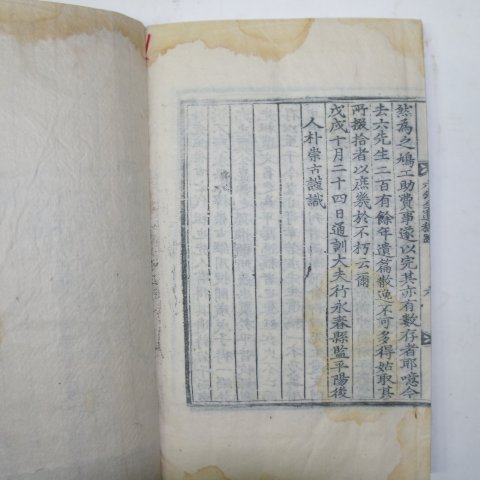 然為之鳩工助費事遂以完其亦有數存者耶噫今
去六先生二百有餘年遺篇散逸不可多得始取其
所掇拾者以庶幾於不朽云爾
戊戌十月二十四日通訓大夫行永春縣監平陽後
人朴崇古謹識
六